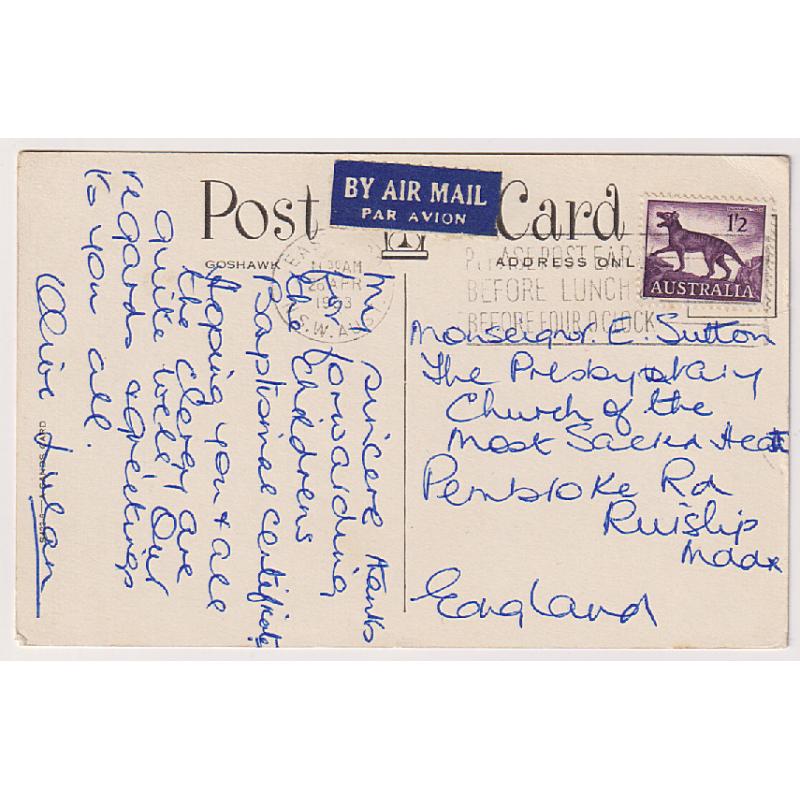 Post Card
BY AIR MAIL
PAR AVION
GOSHAWK
ADDRESS ONL
1'2
AUSTRALIA
11 30AM
26 APR
1963
N.S.W. AUS
BEFORE LUNCH
BEFORE FOUR O'CLOCK
My sincere thanks
for forwarding
the childrens
Baptismal certificate
Hoping you & all
the Clergy are
quite well. Our
regards & greetings
to you all.
Monseignor. E. Sutton
The Presbytairy
Church of the
Most Sacred Heart
Pembroke Rd
Ruislip
Maddx
England